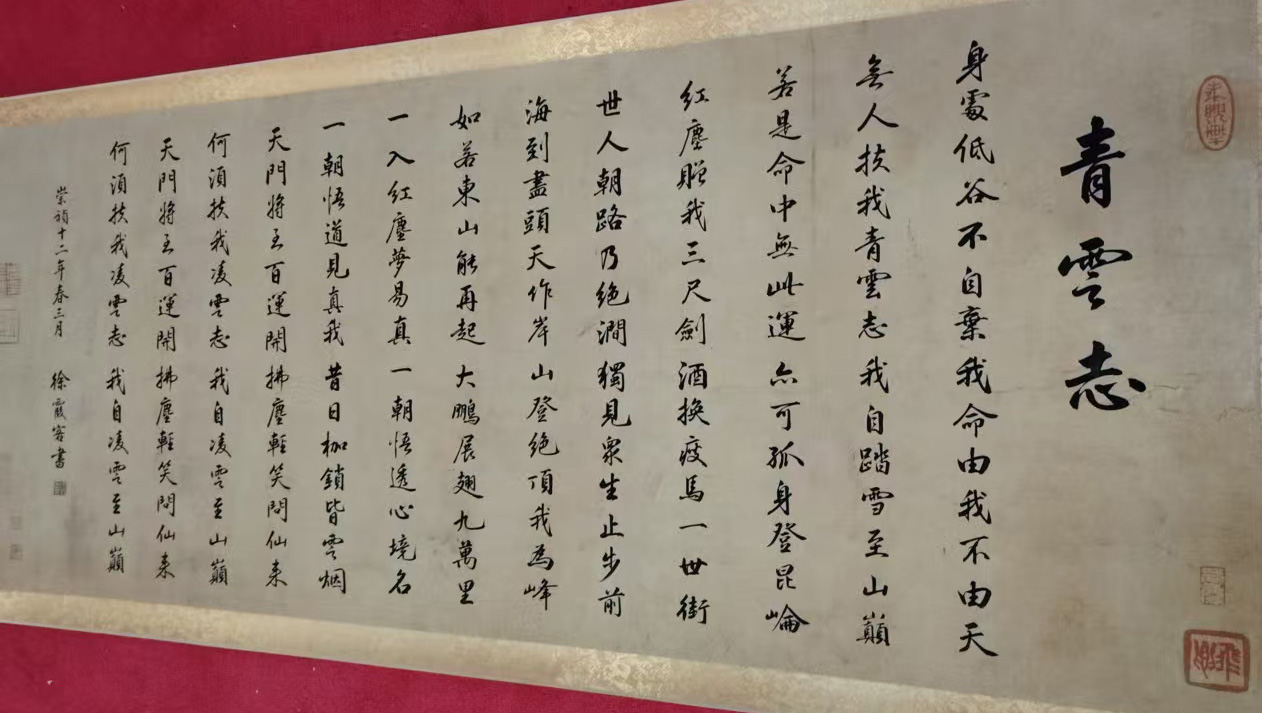 青雲志
身處低谷不自棄我命由我不由天
無人扶我青雲志我自踏雪至山巔
若是命中無此運亦可孤身登昆崙
紅塵贈我三尺劍酒換瘦馬一世街
世人朝路乃絕澗獨見眾生止步前
海到盡頭天作岸山登絕頂我為峰
如若東山能再起大鵬展翅九萬里
一入紅塵夢易真一朝悟透心境名
一朝悟道見真我昔日枷鎖皆雲烟
天門將至百運開拂塵輕笑問仙來
何須扶我凌雲志我自凌雲至山巔
天門將至百運開拂塵輕笑問仙來
何須扶我凌雲志我自凌雲至山巔
崇禎十二年春三月 徐霞客書